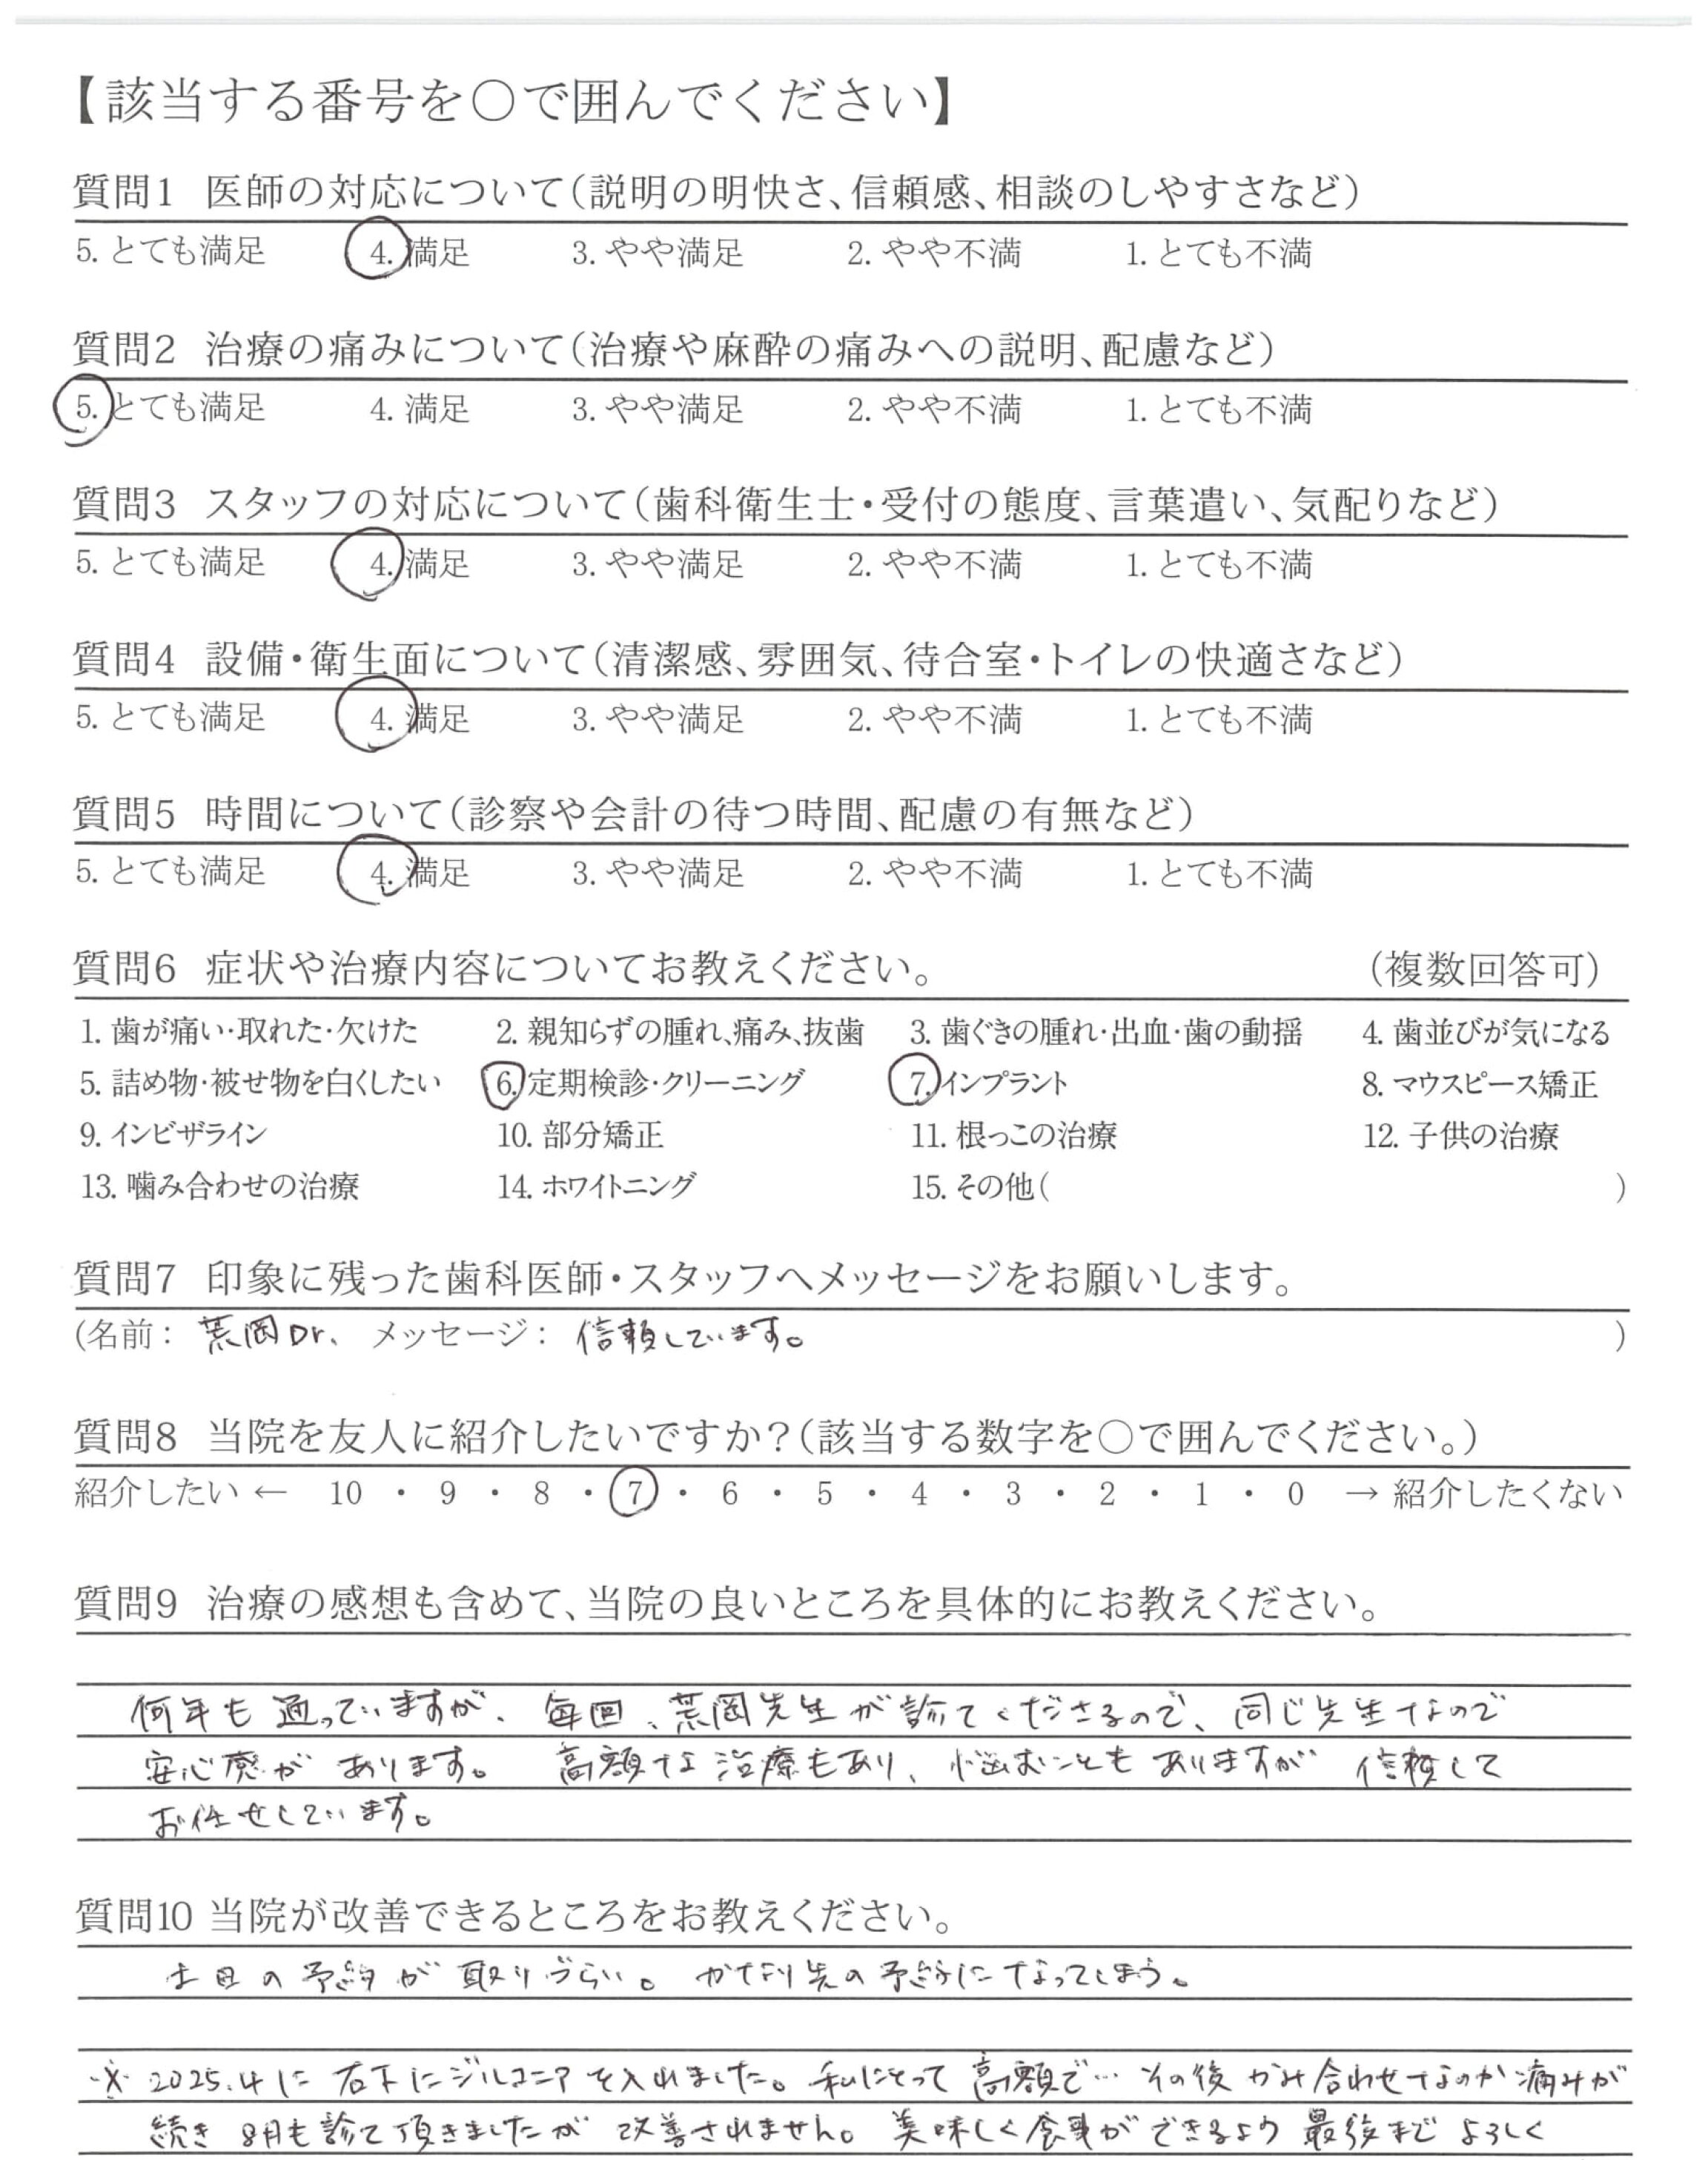 【該当する番号を○で囲んでください】
質問1 医師の対応について(説明の明快さ、信頼感、相談のしやすさなど)
5. とても満足 4. 満足 3. やや満足 2. やや不満 1. とても不満
質問2 治療の痛みについて(治療や麻酔の痛みへの説明、配慮など)
5. とても満足 4. 満足 3. やや満足 2. やや不満 1. とても不満
質問3 スタッフの対応について(歯科衛生士・受付の態度、言葉遣い、気配りなど)
5. とても満足 4. 満足 3. やや満足 2. やや不満 1. とても不満
質問4 設備・衛生面について(清潔感、雰囲気、待合室・トイレの快適さなど)
5. とても満足 4. 満足 3. やや満足 2. やや不満 1. とても不満
質問5 時間について(診察や会計の待つ時間、配慮の有無など)
5. とても満足 4. 満足 3. やや満足 2. やや不満 1. とても不満
質問6 症状や治療内容についてお教えください。 (複数回答可)
1. 歯が痛い・取れた・欠けた 2. 親知らずの腫れ、痛み、抜歯 3. 歯ぐきの腫れ・出血・歯の動揺 4. 歯並びが気になる
5. 詰め物・被せ物を白くしたい 6. 定期検診・クリーニング 7. インプラント 8. マウスピース矯正
9. インビザライン 10. 部分矯正 11. 根っこの治療 12. 子供の治療
13. 噛み合わせの治療 14. ホワイトニング 15. その他( )
質問7 印象に残った歯科医師・スタッフへメッセージをお願いします。
(名前: 荒岡Dr. メッセージ: 信頼しています。 )
質問8 当院を友人に紹介したいですか?(該当する数字を○で囲んでください。)
紹介したい ← 10 ・ 9 ・ 8 ・ 7 ・ 6 ・ 5 ・ 4 ・ 3 ・ 2 ・ 1 ・ 0 → 紹介したくない
質問9 治療の感想も含めて、当院の良いところを具体的にお教えください。
何年も通っていますが、毎回、荒岡先生が診てくださるので、同じ先生なので
安心感があります。 高額な治療もあり、悩むこともありますが 信頼して
お任せしています。
質問10 当院が改善できるところをお教えください。
土日の予約が取りづらい。かなり先の予約になってしまう。
※ 2025.4に 右下にジルコニアを入れました。私にとって高額で… その後 かみ合わせなのか痛みが
続き 8月も診て頂きましたが 改善されません。美味しく食事ができるよう 最後まで よろしく